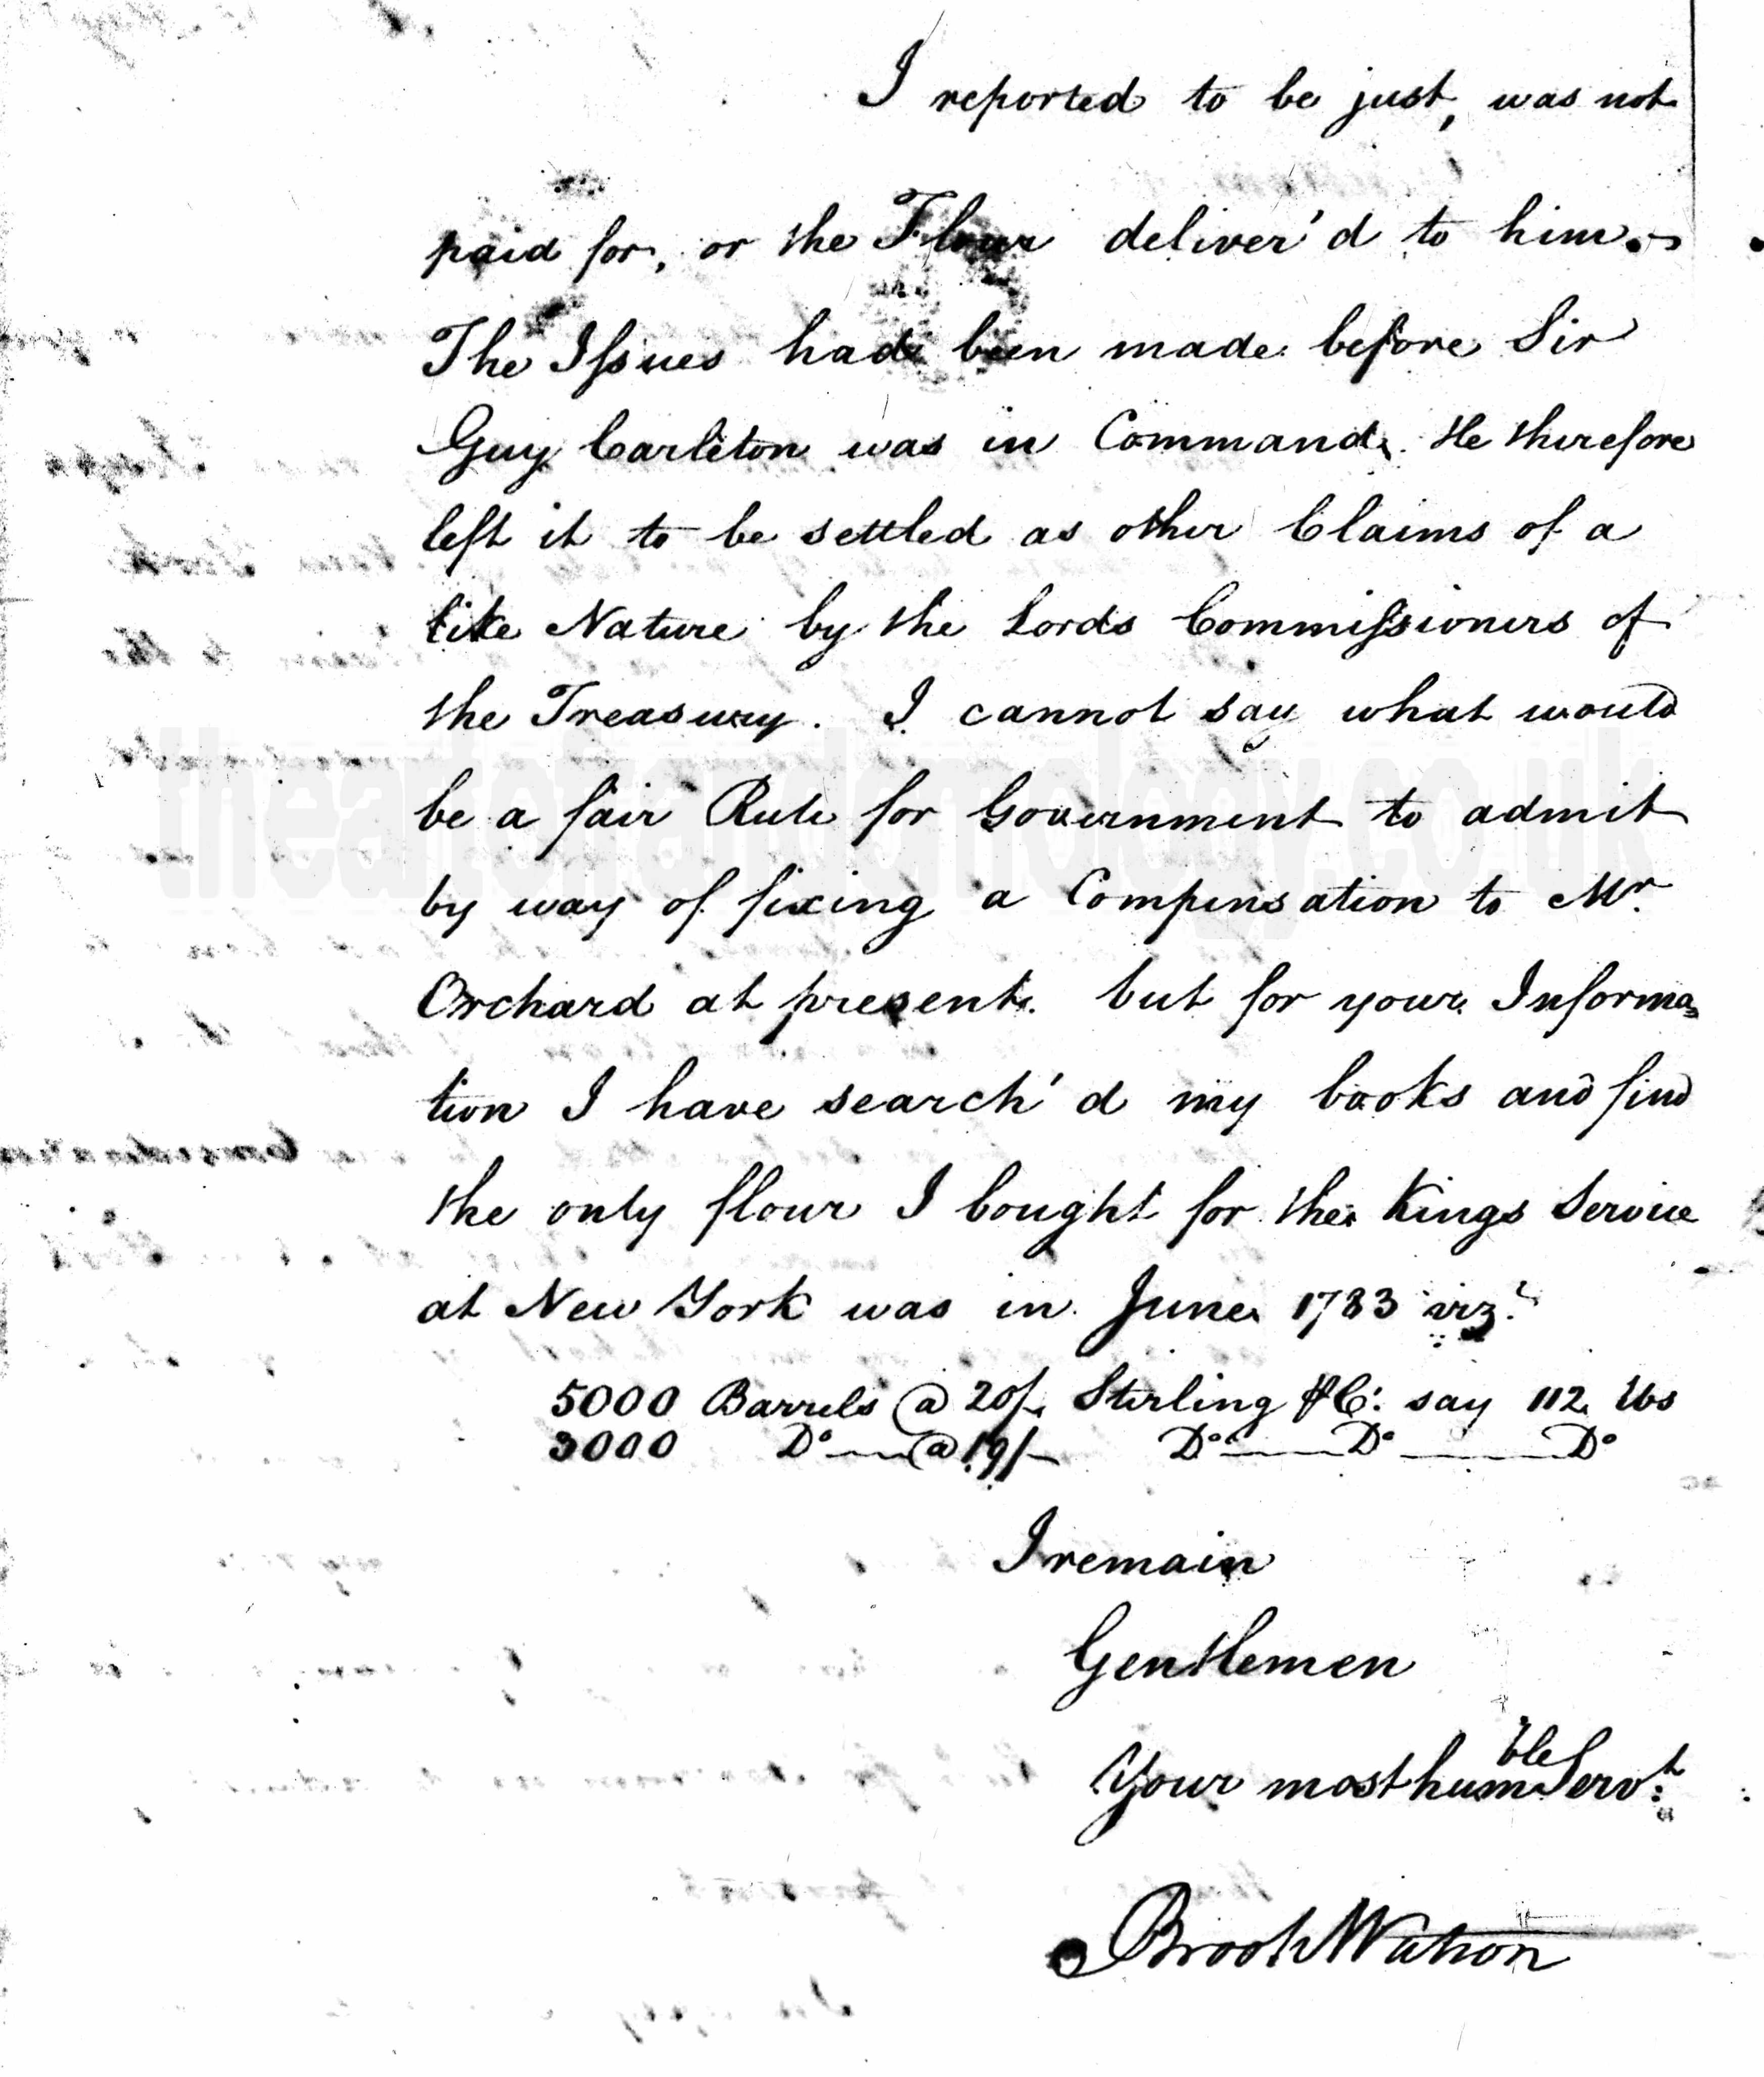 I reported to be just, was not
paid for, or the Flour deliver'd to him.
The Issues had been made before Sir
Guy Carleton was in Command. He therefore
left it to be settled as other Claims of a
like Nature by the Lords Commissioners of
the Treasury. I cannot say what would
be a fair Rule for Government to admit
by way of fixing a Compensation to Mr.
Orchard at present. but for your Informa=
tion I have search'd my books and find
the only flour I bought for the Kings Service
at New York was in June 1783 vizt.
5000 Barrels @ 20/- Sterling ⅌ C: say 112 lbs
3000 Do @ 19/- Do Do Do
I remain
Gentlemen
Your most humble Servt:
Brook Watson
theartofrandomology.co.uk